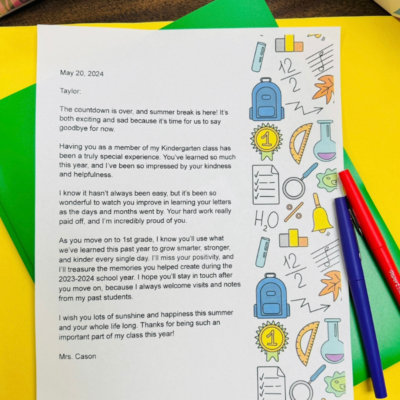 May 20, 2024
Taylor:
The countdown is over, and summer break is here! It's
both exciting and sad because it's time for us to say
goodbye for now.
Having you as a member of my Kindergarten class has
been a truly special experience. You've learned so much
this year, and I've been so impressed by your kindness
and helpfulness.
I know it hasn't always been easy, but it's been so
wonderful to watch you improve in learning your letters
as the days and months went by. Your hard work really
paid off, and I'm incredibly proud of you.
As you move on to 1st grade, I know you'll use what
we've learned this past year to grow smarter, stronger,
and kinder every single day. I'll miss your positivity, and
I'll treasure the memories you helped create during the
2023-2024 school year. I hope you'll stay in touch after
you move on, because I always welcome visits and notes
from my past students.
I wish you lots of sunshine and happiness this summer
and your whole life long. Thanks for being such an
important part of my class this year!
Mrs. Cason
12/2
1
H₂O
%
12/2
1